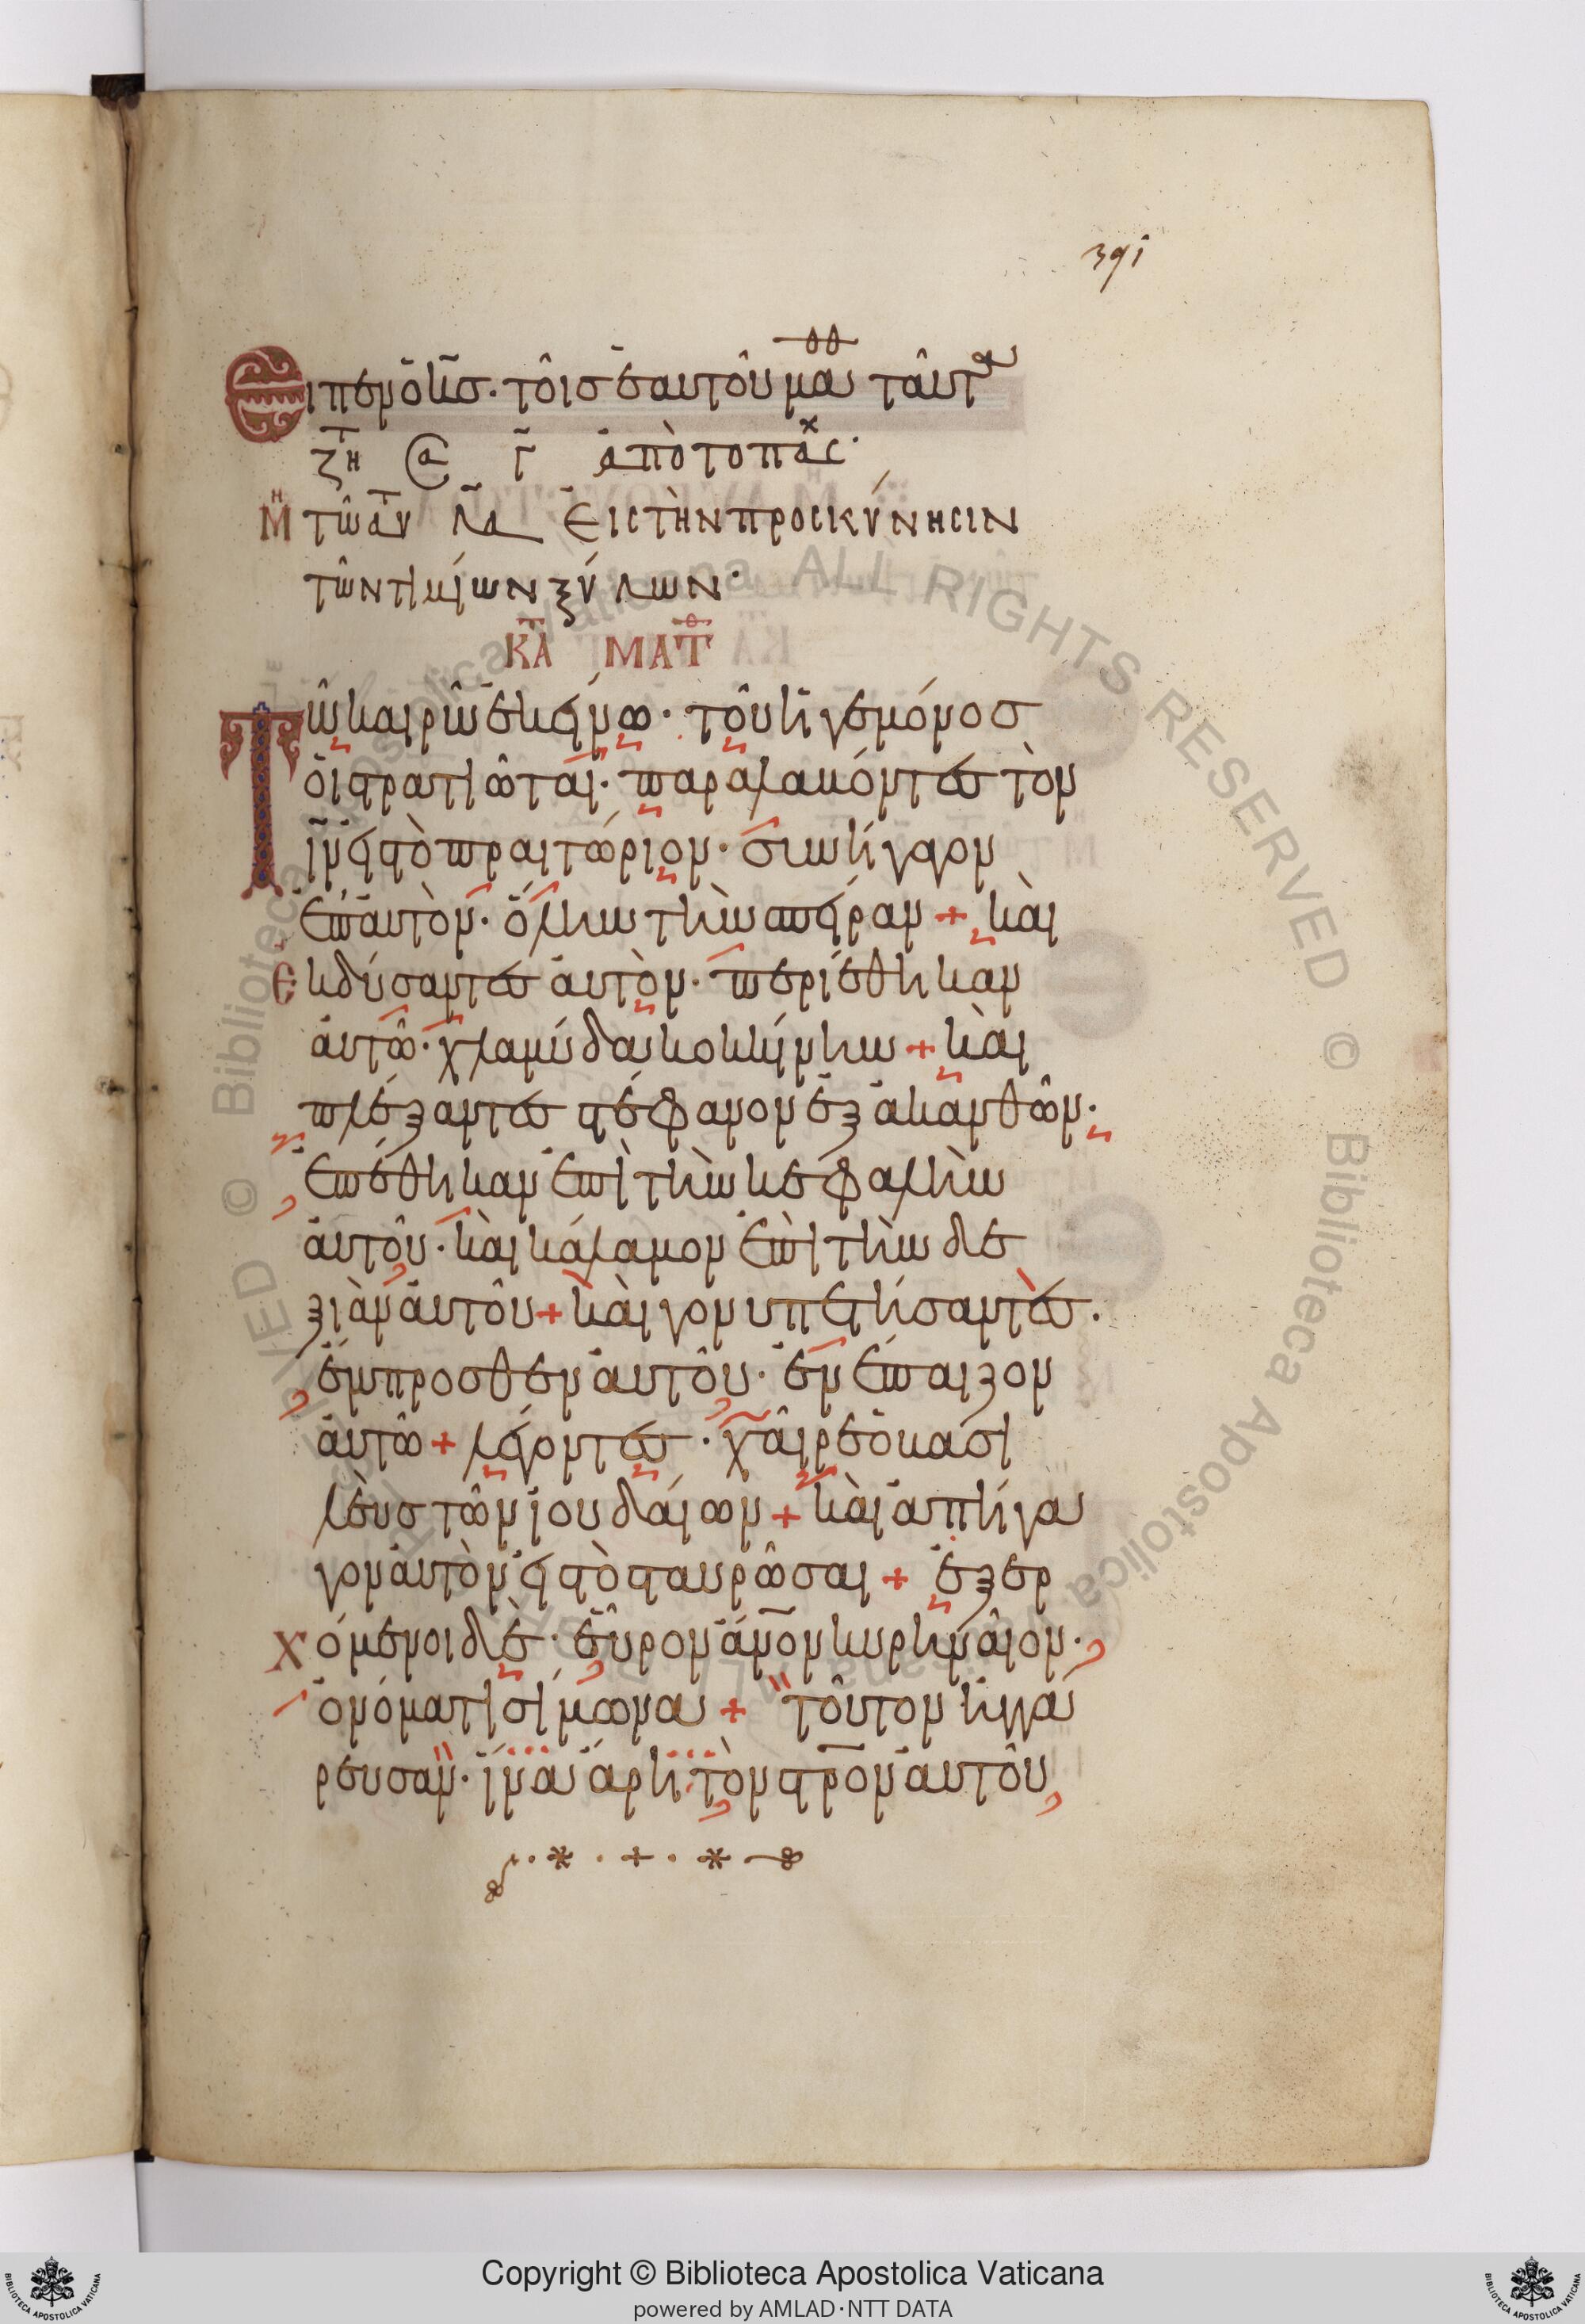 391
Ειπεν ὁ κ̅σ· τοῖσ ἑαυτοῦ μαθθ ταύτ
ζη
ἀπὸ το πασχ·
Μη τῶ αυτ
Εἰς τὴν προσκύνησιν
τῶν τιμίων ξύλων·
ΚΑΤ ΜΑΤΘ
Τῶ καιρῶ ἐκείνω· τοῦ ἡγεμόνοσ
οἱ στρατιῶται· παραλαβόντεσ τὸν
ι̅ν εἰσ τὸ πραιτώριον· συνήγαγον
ἐπ' αὐτὸν· ὅλην τὴν σπεῖραν + καὶ
ἐκδύσαντεσ αὐτὸν· περιέθηκαν
αὐτῶ· χλαμύδα κοκκίνην + καὶ
πλέξαντεσ στέφανον ἐξ ἀκανθῶν·
ἐπέθηκαν ἐπὶ τὴν κεφαλὴν
αὐτοῦ· καὶ κάλαμον ἐπὶ τὴν δε
ξιὰν αὐτοῦ + καὶ γονυπετήσαντεσ·
ἔμπροσθεν αὐτοῦ· ἐνέπαιζον
αὐτῶ + λέγοντεσ· χαῖρε ὁ βασι
λεὺσ τῶν ἰουδαίων + καὶ ἀπήγα
γον αὐτὸν εἰσ τὸ σταυρῶσαι + ἐξερ
χόμενοι δὲ· εὗρον α̅ν̅ο̅ν κυρηναῖον·
ὀνόματι σίμωνα + τοῦτον ἠγγά
ρευσαν· ἵνα ἄρη τὸν σ̅τ̅ρ̅ο̅ν αὐτοῦ
Copyright © Biblioteca Apostolica Vaticana
powered by AMLAD·NTT DATA